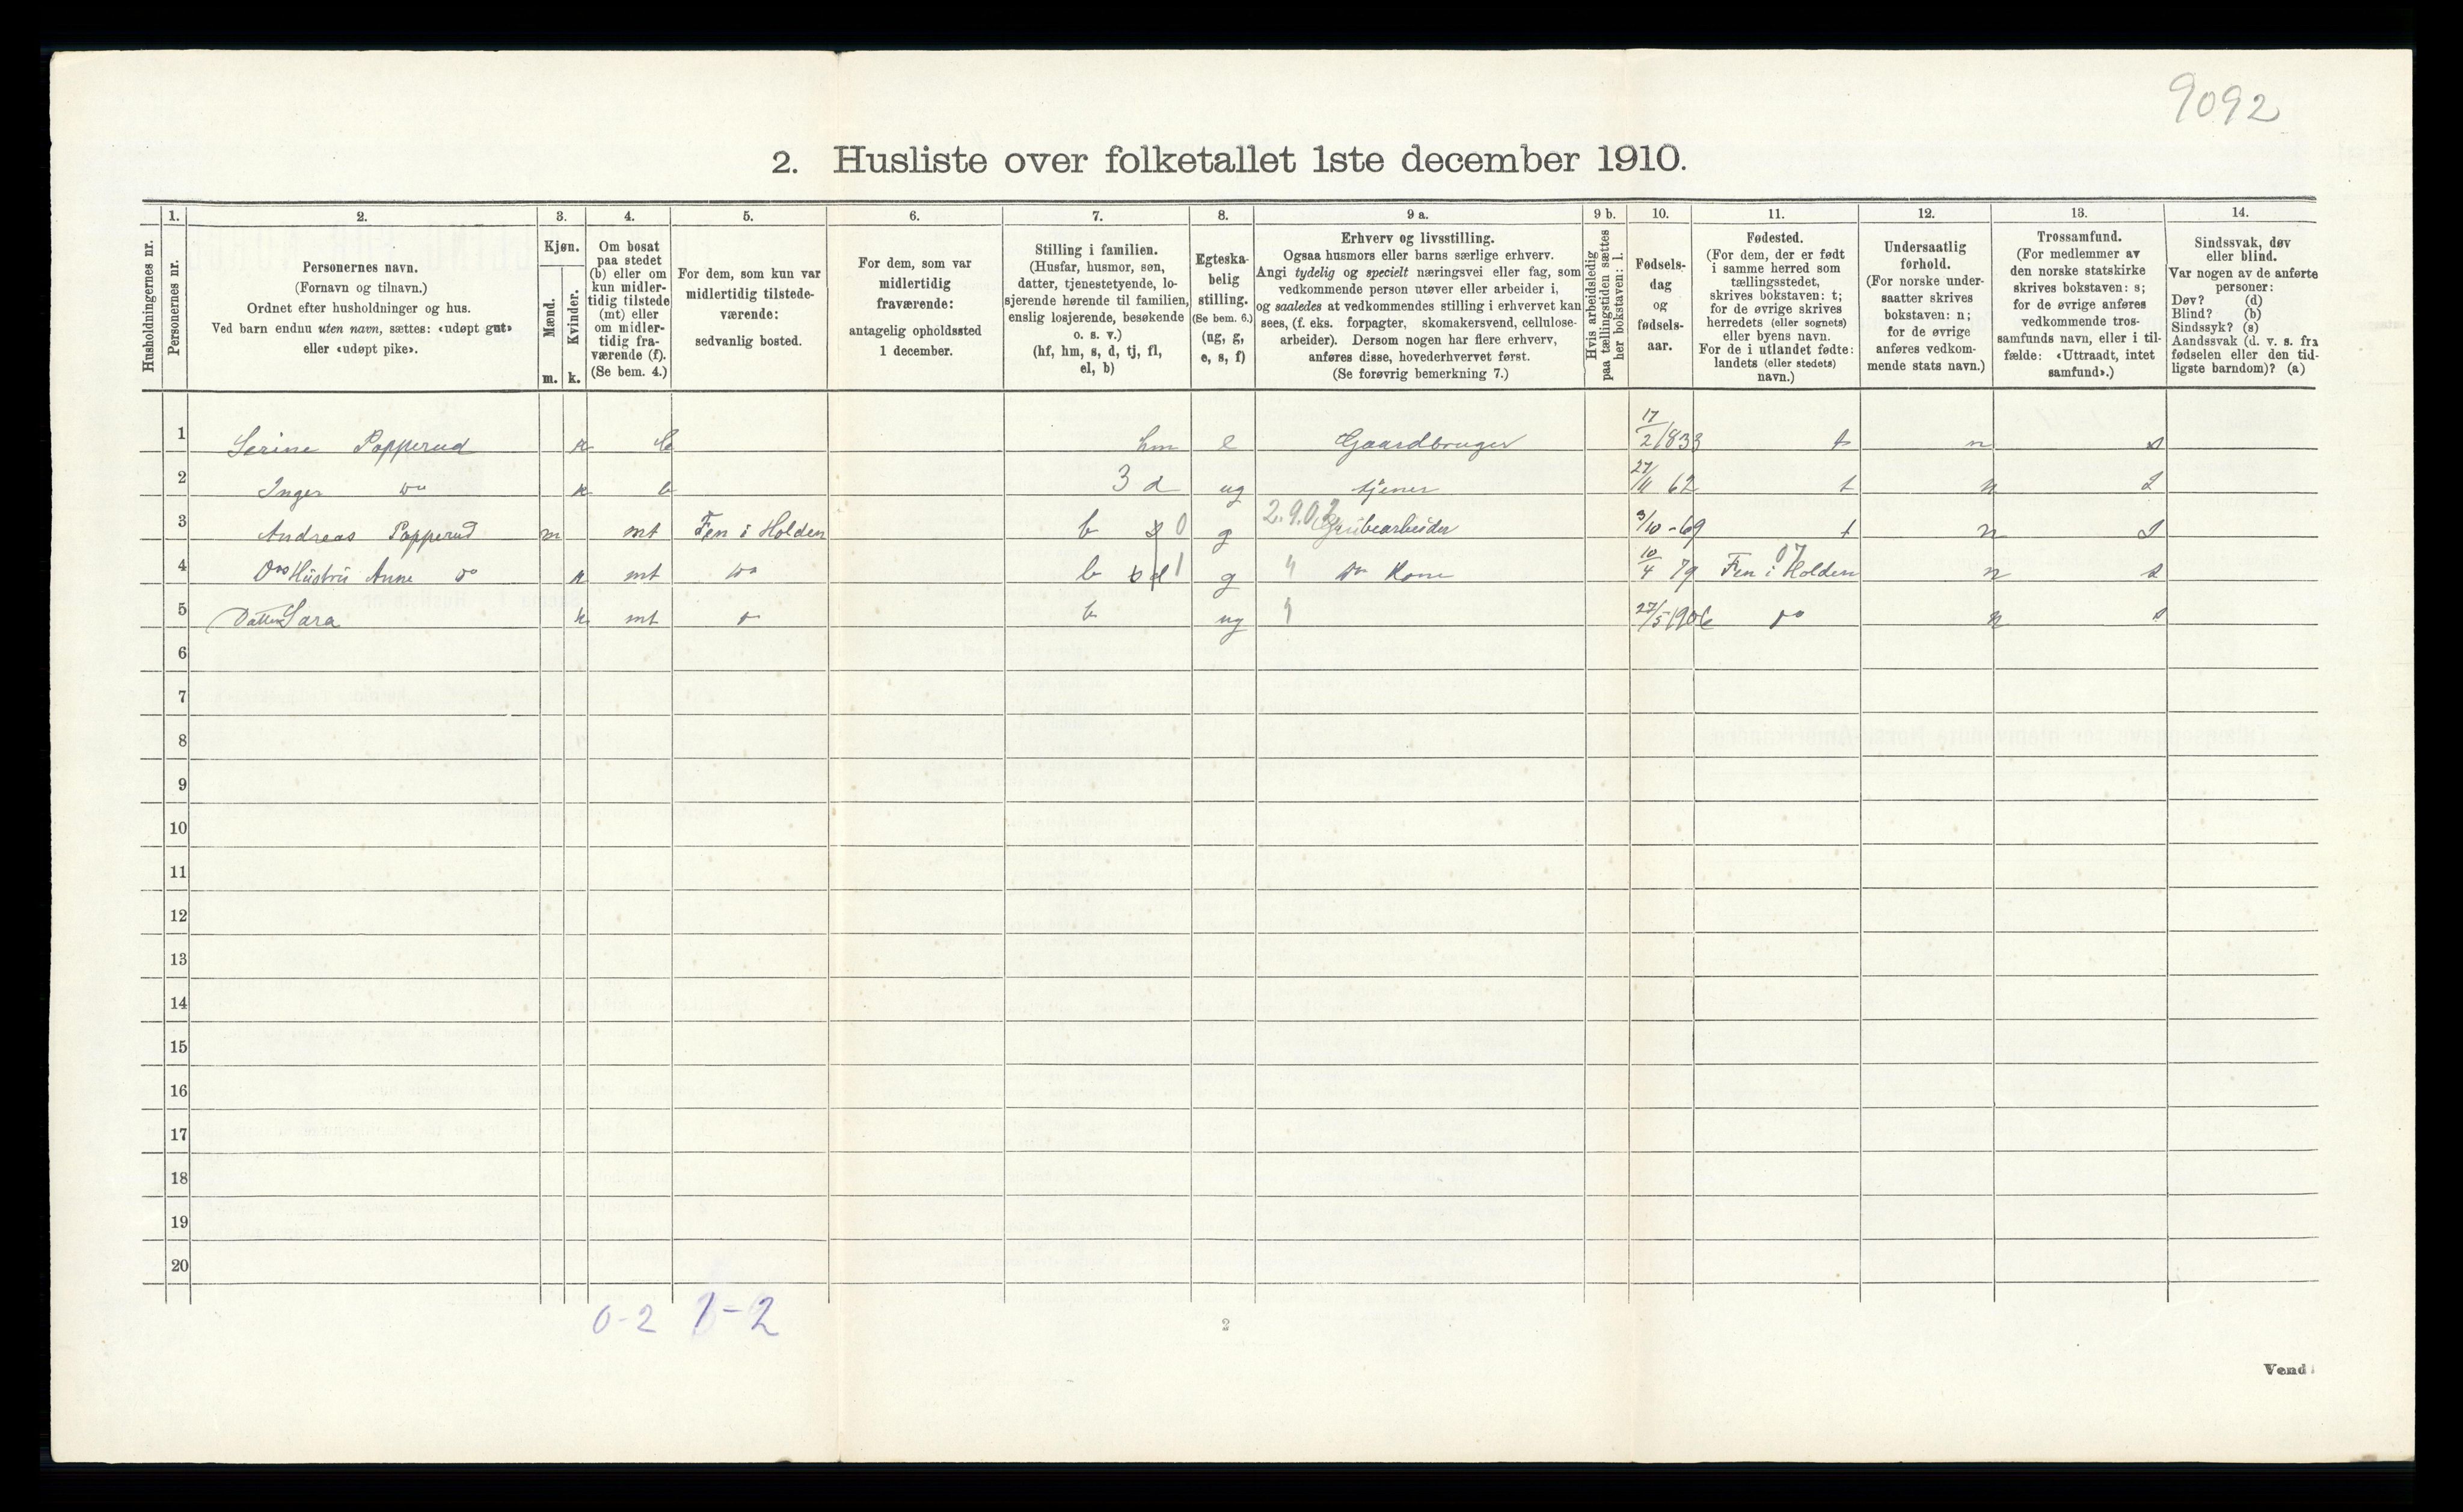 9092
2. Husliste over folketallet 1ste december 1910.
1. 2. 3. 4. 5. 6. 7. 8. 9 a. 9 b. 10. 11. 12. 13. 14.
Husholdningernes nr.
Personernes nr.
Personernes navn.
(Fornavn og tilnavn.)
Ordnet efter husholdninger og hus.
Ved barn endnu uten navn, sættes: «udøpt gut»
eller «udøpt pike».
Kjøn.
Mænd.
Kvinder.
m. k.
Om bosat
paa stedet
(b) eller om
kun midler-
tidig tilstede
(mt) eller
om midler-
tidig fra-
værende (f).
(Se bem. 4.)
For dem, som kun var
midlertidig tilstede-
værende:
sedvanlig bosted.
For dem, som var
midlertidig
fraværende:
antagelig opholdssted
1 december.
Stilling i familien.
(Husfar, husmor, søn,
datter, tjenestetyende, lo-
sjerende hørende til familien,
enslig losjerende, besøkende
o. s. v.)
(hf, hm, s, d, tj, fl,
el, b)
Egteska-
belig
stilling.
(Se bem. 6.)
(ug, g,
e, s, f)
Erhverv og livsstilling.
Ogsaa husmors eller barns særlige erhverv.
Angi tydelig og specielt næringsvei eller fag, som
vedkommende person utøver eller arbeider i,
og saaledes at vedkommendes stilling i erhvervet kan
sees, (f. eks. forpagter, skomakersvend, cellulose-
arbeider). Dersom nogen har flere erhverv,
anføres disse, hovederhvervet først.
(Se forøvrig bemerkning 7.)
Hvis arbeidsledig
paa tællingstiden sættes
her bokstaven: l.
Fødsels-
dag
og
fødsels-
aar.
Fødested.
(For dem, der er født
i samme herred som
tællingsstedet,
skrives bokstaven: t;
for de øvrige skrives
herredets (eller sognets)
eller byens navn.
For de i utlandet fødte:
landets (eller stedets)
navn.)
Undersaatlig
forhold.
(For norske under-
saatter skrives
bokstaven: n;
for de øvrige
anføres vedkom-
mende stats navn.)
Trossamfund.
(For medlemmer av
den norske statskirke
skrives bokstaven: s;
for de øvrige anføres
vedkommende tros-
samfunds navn, eller i til-
fælde: «Uttraadt, intet
samfund».)
Sindssvak, døv
eller blind.
Var nogen av de anførte
personer:
Døv? (d)
Blind? (b)
Sindssyk? (s)
Aandssvak (d. v. s. fra
fødselen eller den tid-
ligste barndom)? (a)
1 Serine Papperud k b hm e Gaardbruger 17/2 1833 t n s
2 Inger do k b 3 d ug tjener 27/11 62 t n s
3 Andreas Papperud m mt Fen i Holden b s 0 g 2.9.03 Grubearbeider 9/10 - 69 t n s
4 Ds Hustru Anne do k mt do b d 1 g " Ds Kone 10/4 79 Fen i Holden 07 n s
5 Datter Sara k mt do b ug " 27/5 1906 do n s
6
7
8
9
10
11
12
13
14
15
16
17
18
19
20
0-2 1-2
2
Vend!